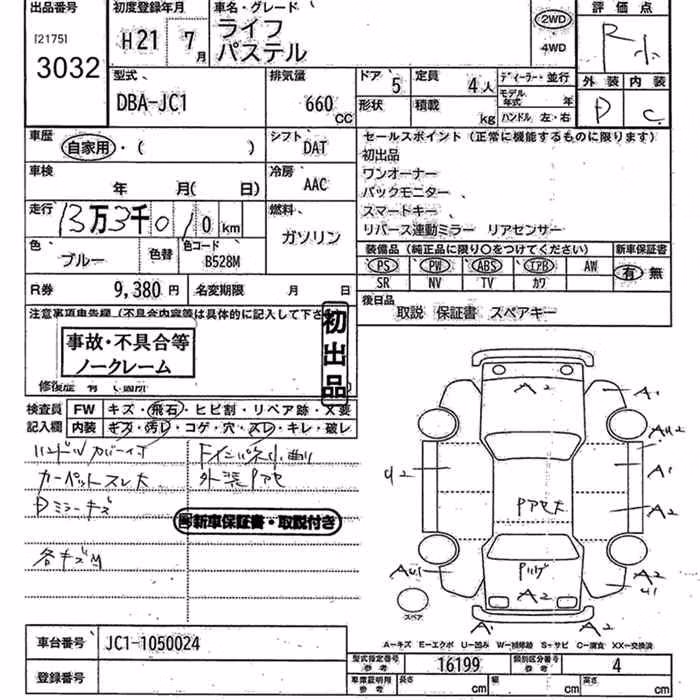 出品番号 初度登録年月 車名・グレード 評価点
[2175] H21 7月 ライフ 2WD R
3032 パステル 4WD
外装 内装
D C
型式 排気量 ドア 5 定員 4人 ディーラー・並行
DBA-JC1 660 CC 形状 積載 kg モデル年式 年
ハンドル 左・右
車歴 シフト セールスポイント(正常に機能するものに限ります)
自家用・( ) DAT 初出品
車検 冷房 ワンオーナー
年 月( 日) AAC バックモニター
スマートキー
走行 13万3千010km 燃料 リバース連動ミラー リアセンサー
色 色替 色コード ガソリン 装備品(純正品に限り○をつけてください) 新車保証書
ブルー B528M PS PW ABS エアB AW 有・無
SR NV TV カワ
R券 9,380円 名変期限 月 日 後日品
取説 保証書 スペアキー
注意事項申告欄(不具合内容等は具体的に記入して下さ
事故・不具合等
ノークレーム
初出品
修復歴 有
検査員 FW キズ・飛石・ヒビ割・リペア跡・X要
記入欄 内装 キズ・汚レ・コゲ・穴・スレ・キレ・破レ
ハンドルカバー付
カーペットスレ大 外装Pアセ
Dミラーキズ
新車保証書・取説付き
各キズ
A2 A1
A1
U2 A2
Pアセ大
Pハゲ A2
A2 U1
スペア
A1 A2
A=キズ E=エクボ U=凹み W=補修跡 S=サビ C=腐食 XX=交換済
車台番号 JC1-1050024
型式指定番号 参考 16199 類別区分番号 参考 4
登録番号
車庫証明用 参考 長さ cm 幅 cm 高さ cm